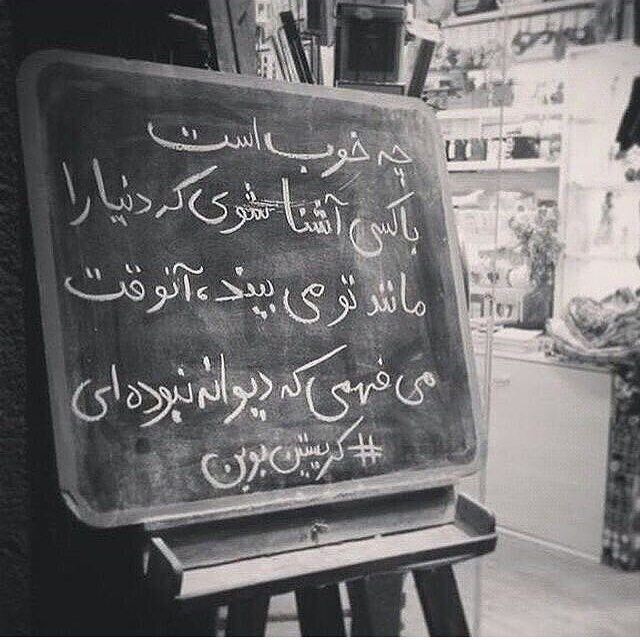 چه خوب است
با کسی آشنا شوی که دنیا را
مانند تو می بیند، آنوقت
می فهمی که دیوانه نبوده ای
#کریستین بوبن